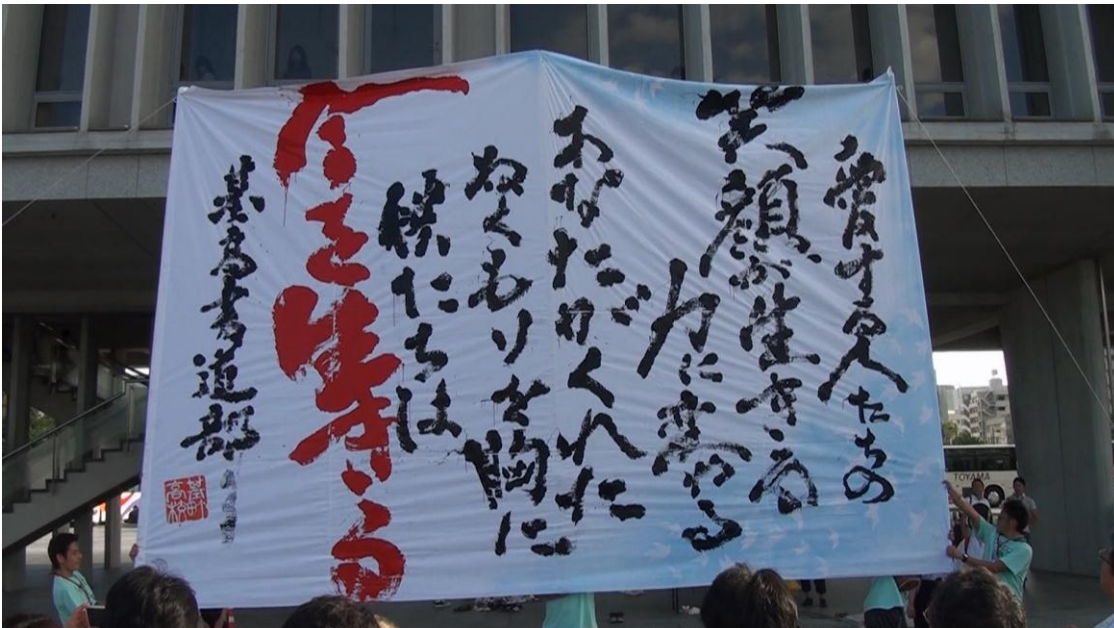 愛する人たちの
笑顔が生きる
力に変わる
あなたがくれた
ぬくもりを胸に
僕たちは
今を生きる
基高書道部
基町
高校
TOYAMA